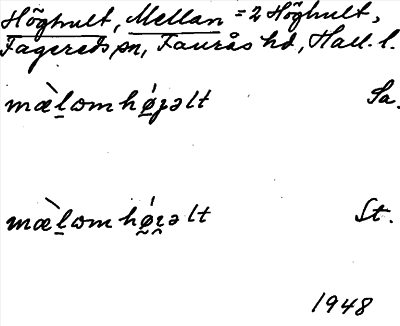 Höghult, Mellan = 2 Höghult,
Fagereds sn, Faurås hd, Hall. l.
mæ̀l̠ɷmhǿ̠ʒəlt Sa.
mæ̀l̠ɷmhǿ̰ʒ̰əlt St.
1948